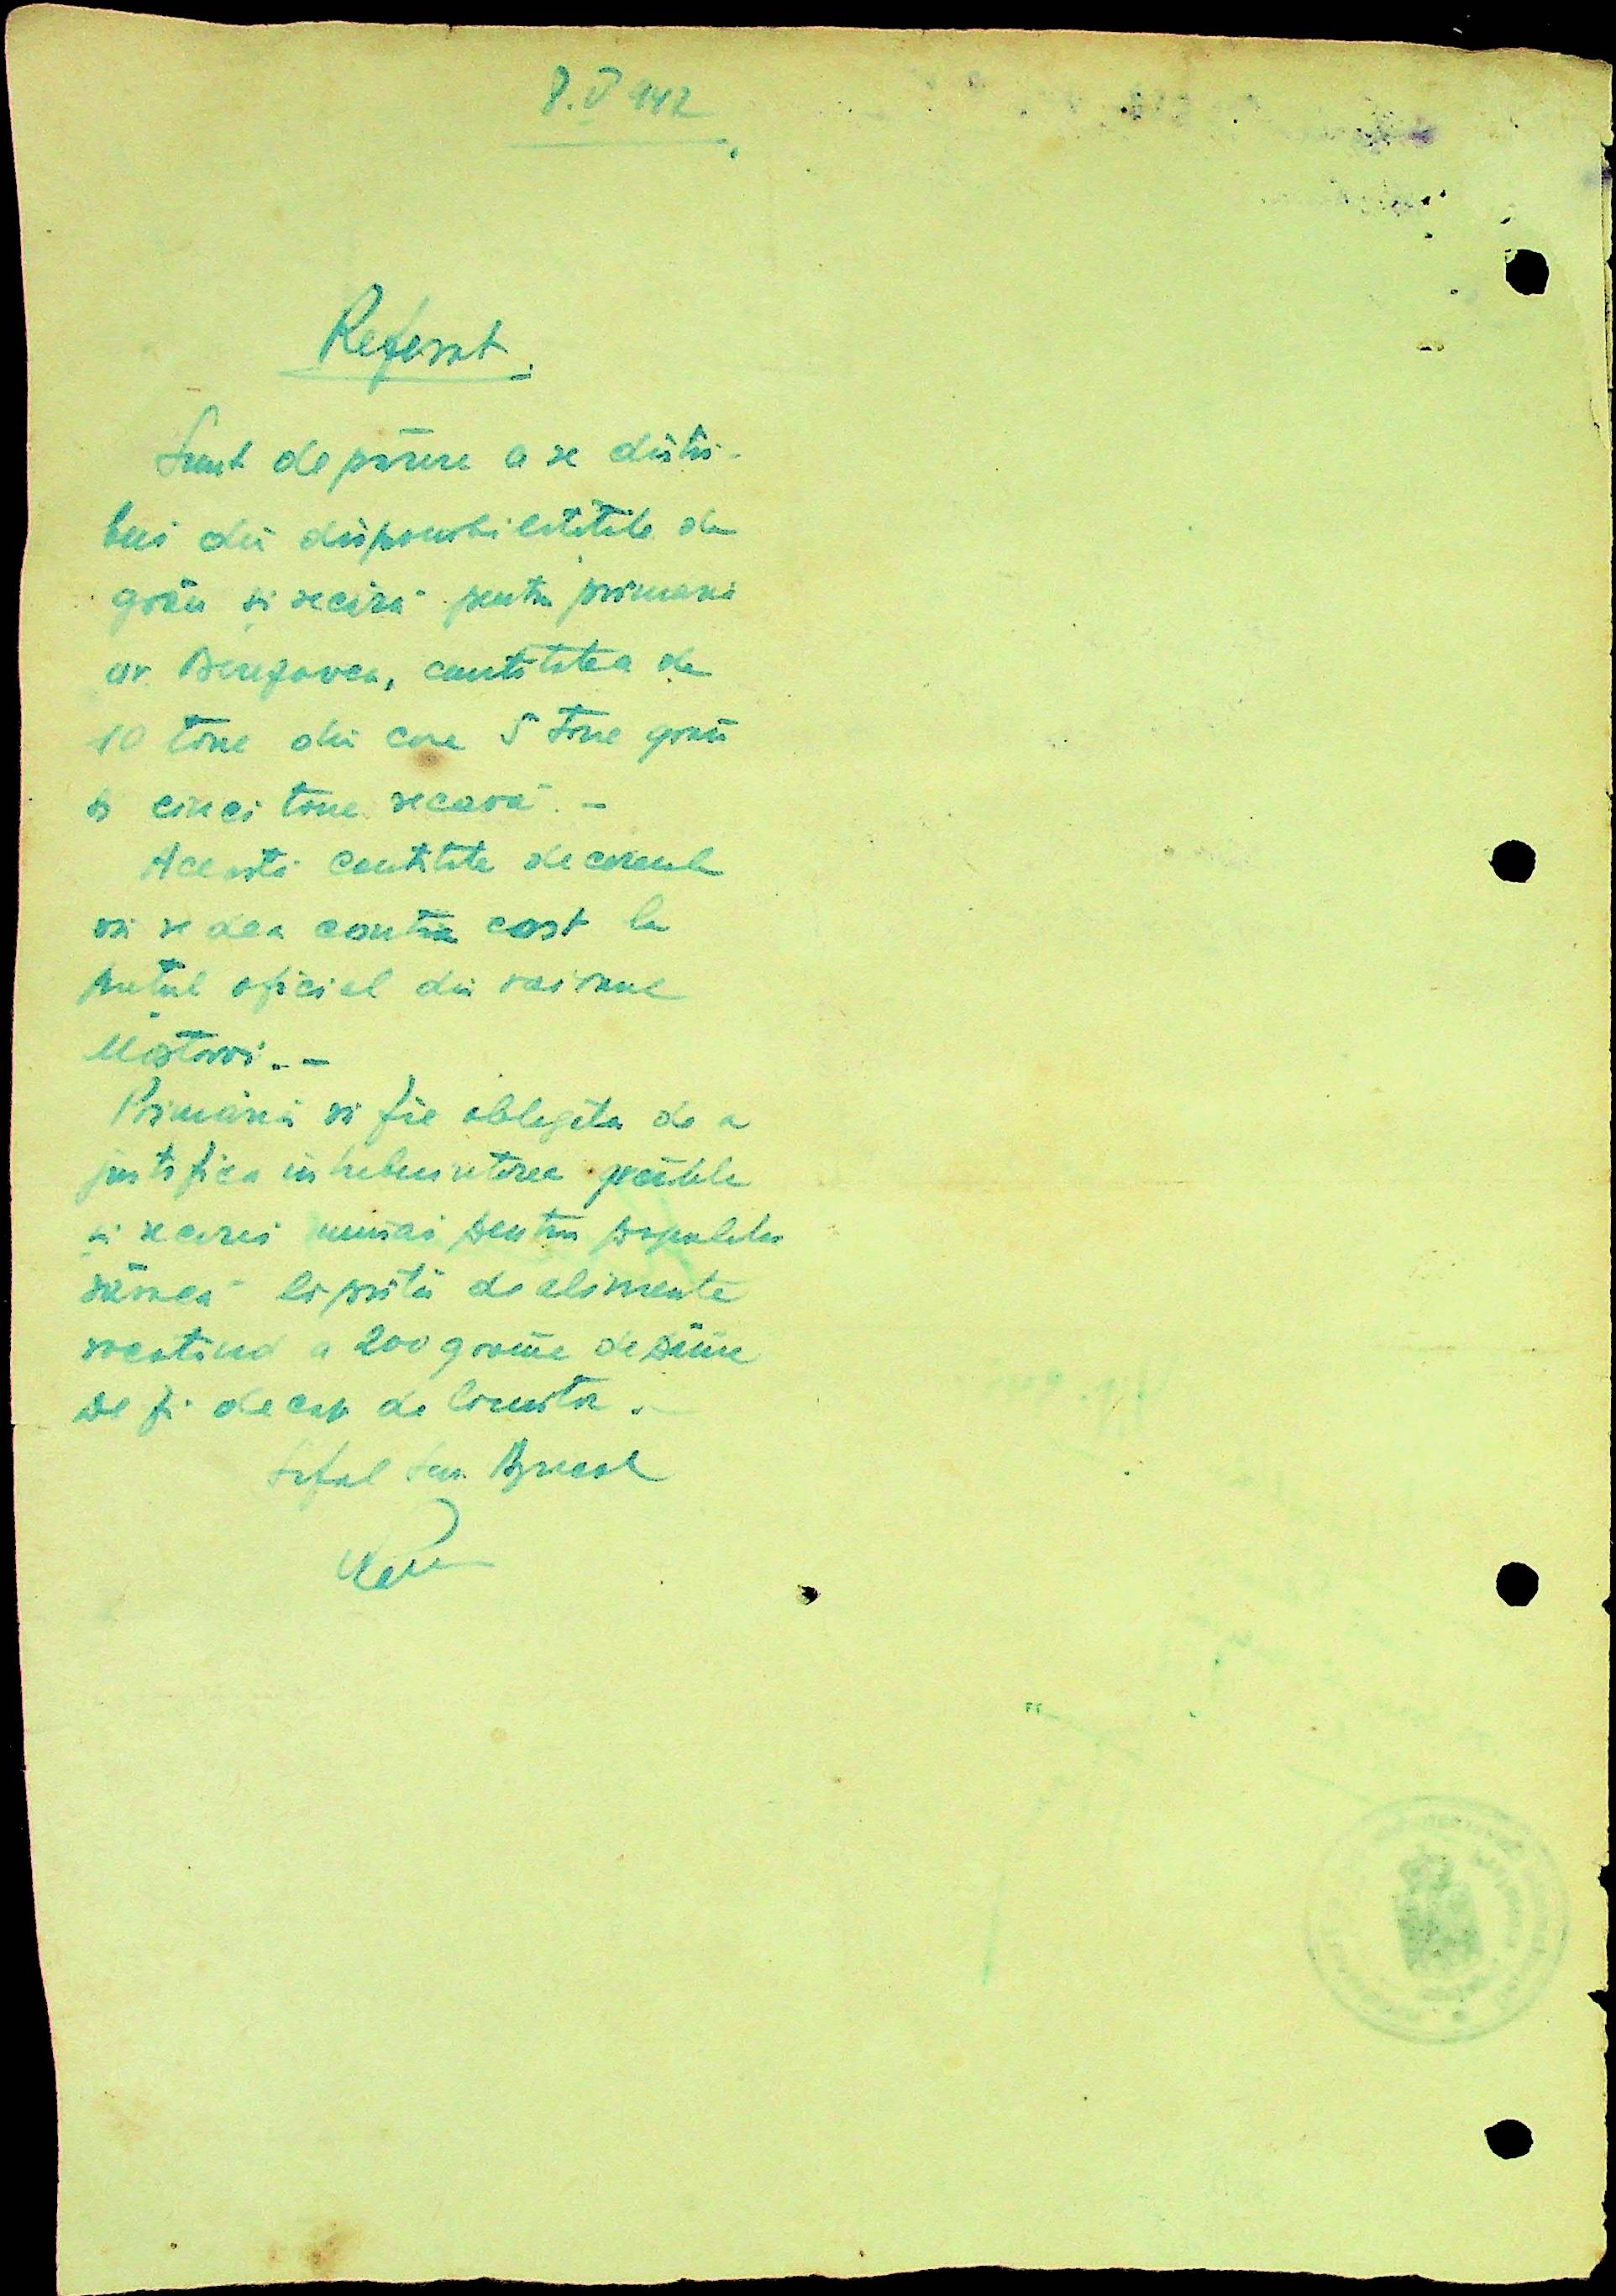 8.V 942
Referat.
Sunt de părere a se distri-
bui din disponibilitățile de
grâu și secară pentru primaria
or. Berezovca, cantitatea de
10 tone din care 5 tone grâu
și cinci tone secară. -
Această cantitate de cereale
să se dea contra cost la
prețul oficial din raionul
Mostovoi. -
Primăria să fie obligată de a
justifica întrebuințarea grâului
și secarei numai pentru populația
săracă lipsită de alimente
socotind a 200 grame de pâine
pe zi de cap de locuitor. -
Șeful Serv. Agricol